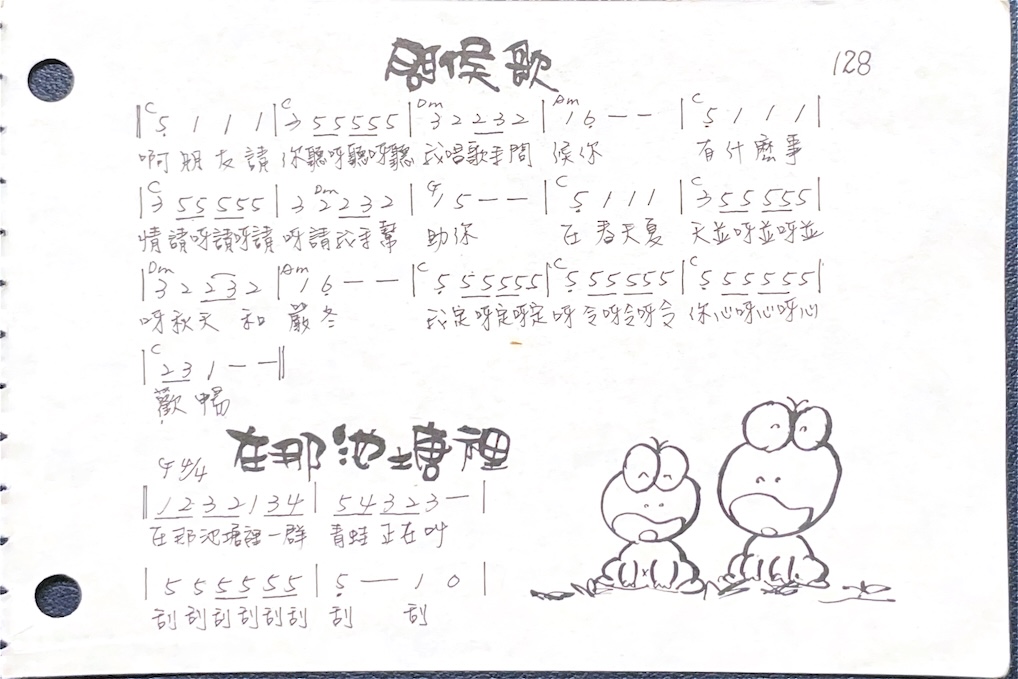 問候歌
128
C C Dm Am C
‖ 5 1 1 1 | 3 5 5 5 5 5 | 3 2 2 3 2 | 1 6 — — | 5 1 1 1 |
啊朋友請 你聽呀聽呀聽 我唱歌來問 候你 有什麼事
C Dm G C C
| 3 5 5 5 5 5 | 3 2 2 3 2 | 1 5 — — | 5 1 1 1 | 3 5 5 5 5 5 |
情請呀請呀請 呀請我來幫 助你 在春天夏 天並呀並呀並
Dm Am C C C
| 3 2 2 3 2 | 1 6 — — | 5 5 5 5 5 5 | 5 5 5 5 5 5 | 5 5 5 5 5 5 |
呀秋天 和 嚴冬 我定呀定呀定 呀令呀令呀令 你心呀心呀心
C
| 2 3 1 — — ‖
歡暢
在那池塘裡
G 4/4
‖ 1 2 3 2 1 3 4 | 5 4 3 2 3 — |
在那池塘裡一群 青蛙正在叫
| 5 5 5 5 5 5 | 5 — 1 0 |
刮刮刮刮刮刮 刮 刮